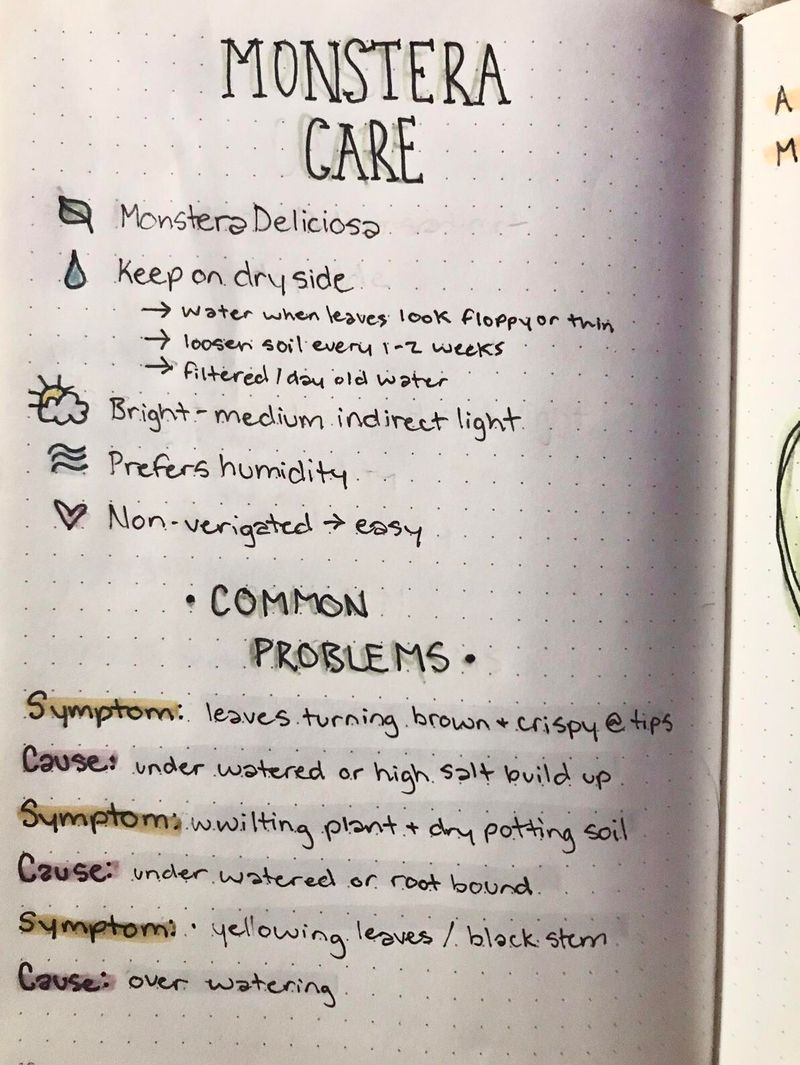 MONSTERA
CARE
Monstera Deliciosa
Keep on dry side
→ water when leaves look floppy or thin
→ loosen soil every 1-2 weeks
→ filtered/day old water
Bright-medium indirect light
Prefers humidity
Non-verigated → easy
• COMMON
PROBLEMS •
Symptom: leaves turning brown + crispy @ tips
Cause: under watered or high salt build up
Symptom: wwilting plant + dry potting soil
Cause: under watered or root bound
Symptom: • yellowing leaves / black stem
Cause: over watering
A
M